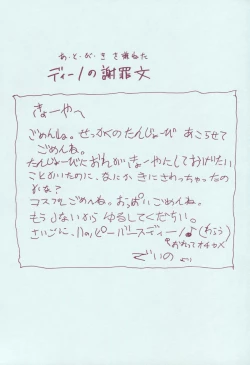 あ・と・が・き を兼ねた
ディーノの謝罪文
きょーやへ
ごめんね。せっかくのたんじょーび おこらせて
ごめんね。
たんじょーびにおれがきょーやにしてあげたい
ことがいために、なにか きにさわっちゃったの
かな?
コスプレごめんね。おっぱいごめんね。
もうしないから ゆるしてください。
さいごに、ハッピーバースディー!♪(わらう)
おわってオチかよ
でいの